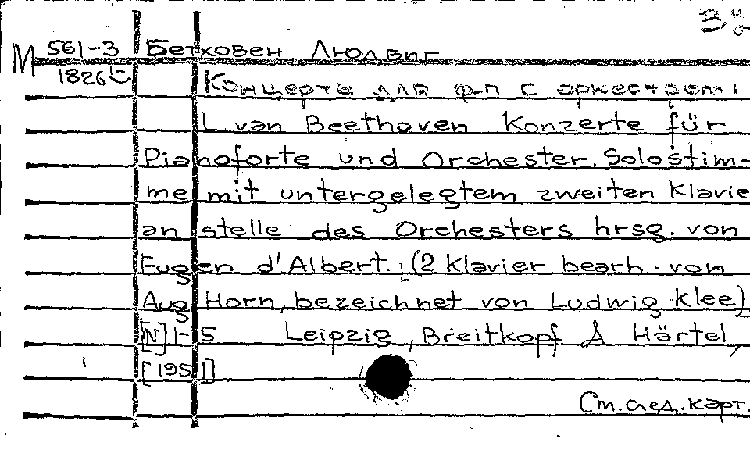 М 561-3 Бетховен Людвиг
1826
Концерты для фп с оркестром
L van Beethoven Konzerte für
Pianoforte und Orchester. Solostim-
me mit untergelegtem zweiten Klavie
an stelle des Orchesters hrsg. von
Eugen d'Albert. (2 Klavier bearb. von
Aug Horn, bezeichnet von Ludwig Klee)
[N] 1-5 Leipzig, Breitkopf & Härtel,
[195 ]
См. след. карт.